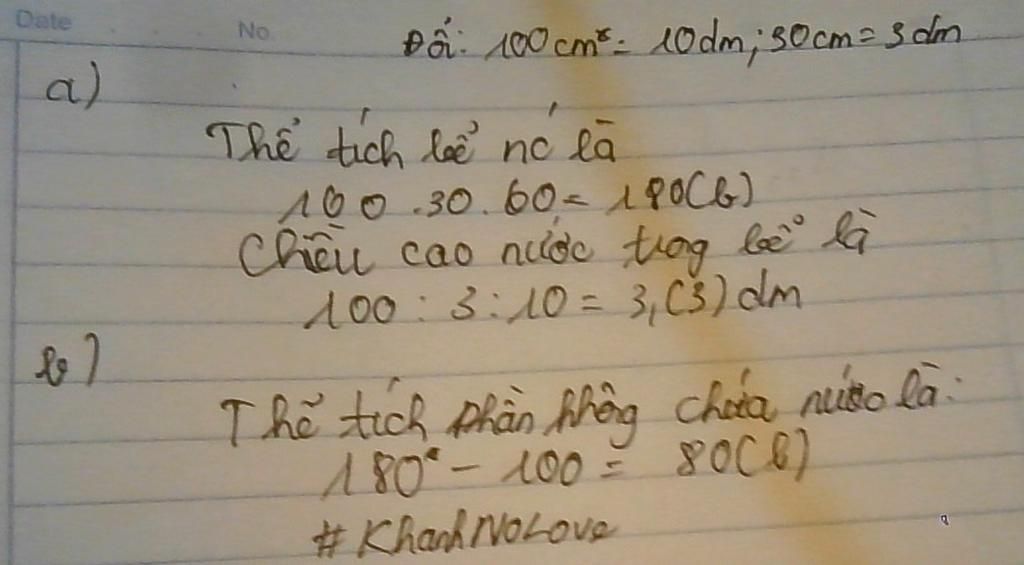 Date No
Đổi: 100cm = 10dm; 30cm = 3dm
a)
Thể tích bể nc là
100.30.60 = 180(l)
Chiều cao nước trog bể là
100 : 3 : 10 = 3,(3) dm
b)
Thể tích phần khôg chứa nước là:
180 - 100 = 80(l)
#KhanhNoLove